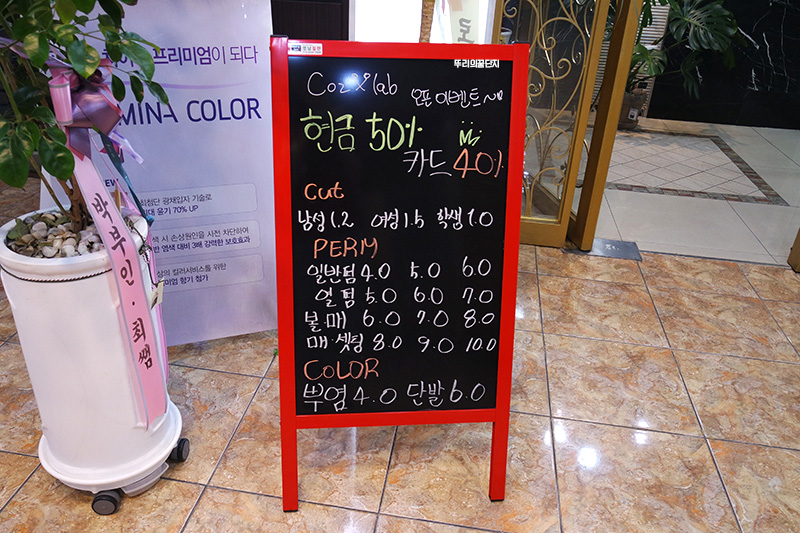 프리미엄이 되다
MINA COLOR
최첨단 광채입자 기술로
윤기 70% UP
색 시 손상원인을 사전 차단하여
반 염색 대비 3배 강력한 보호효과
상의 컬러서비스를 위한
미엄 향기 첨가
박부인·최쌤
뚜리의꿀단지
오픈 이벤트~
현금 50%
카드 40%
Cut
남성 1.2 여성 1.5 학생 1.0
PERM
일반펌 4.0 5.0 6.0
열펌 5.0 6.0 7.0
볼.매 6.0 7.0 8.0
매.셋팅 8.0 9.0 10.0
COLOR
뿌염 4.0 단발 6.0